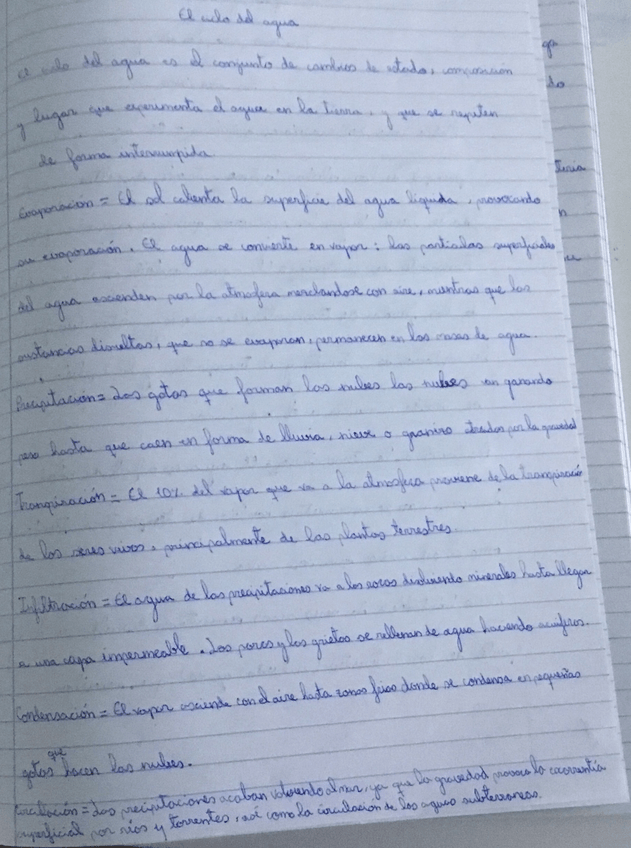 El ciclo del agua
El ciclo del agua es el conjunto de cambios de estado, composición
y lugar que experimenta el agua en la tierra, y que se repiten
de forma interrumpida
Evaporación = El sol calienta la superficie del agua liquida, provocando
su evaporación. El agua se convierte en vapor: las particulas superficiales
del agua ascienden por la atmosfera mezclandose con aire, mientras que las
sustancias disueltas, que no se evaporan, permanecen en las masas de agua.
Precipitación = Las gotas que forman las nubes las nubes van ganando
peso hasta que caen en forma de lluvia, nieve o granizo atraidos por la gravedad
Transpiración = El 10% del vapor que va a la atmosfera proviene de la transpiración
de los seres vivos, principalmente de las plantas terrestres.
Infiltración = El agua de las precipitaciones va a las rocas disolviendo minerales hasta llegar
a una capa impermeable. Los poros y las grietas se rellenan de agua haciendo acuiferos.
Condensación = El vapor asciende con el aire hasta zonas frias donde se condensa en pequeñas
gotas que hacen las nubes.
Circulación = Las precipitaciones acaban volviendo al mar, ya que la gravedad provoca la escorrentía
superficial por ríos y torrentes, así como la circulación de las aguas subterraneas.
ga
do